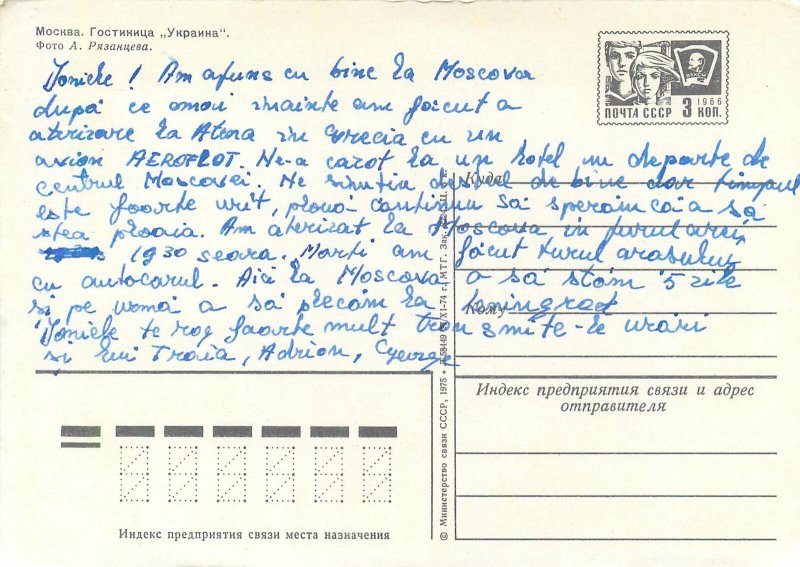 Москва. Гостиница „Украина“.
Фото А. Рязанцева.
1966
ПОЧТА СССР 3 КОП.
ВЛКСМ
Ioniche! Am ajuns cu bine la Moscova
după ce omoi înainte am făcut o
aterizare la Atena în Grecia cu un
avion AEROFLOT. Ne-a cazat la un hotel nu departe de
centrul Moscovei. Ne simțim destul de bine dar timpul
este foarte urît, plouă continuu să sperăm că o să
stea ploaia. Am aterizat la Moscova în jurul orei
1930 seara. Marți am făcut turul orașului
cu autocarul. Aici la Moscova o să stăm 5 zile
și pe urmă o să plecăm la Leningrad
Ioniche te rog foarte mult transmite-le urări
și lui Traia, Adrian, George
Куда
Кому
Индекс предприятия связи и адрес
отправителя
Индекс предприятия связи места назначения
© Министерство связи СССР, 1975